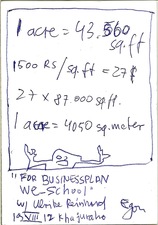 1 acre = 43.560
sq.ft
1500 RS/sq.ft = 27$
27 x 87.000 sq ft.
1 acre = 4050 sq.meter
"FOR BUSINESSPLAN
We-School"
w/ Ulrike Reinhard
19 VIII 12 Khajuraho